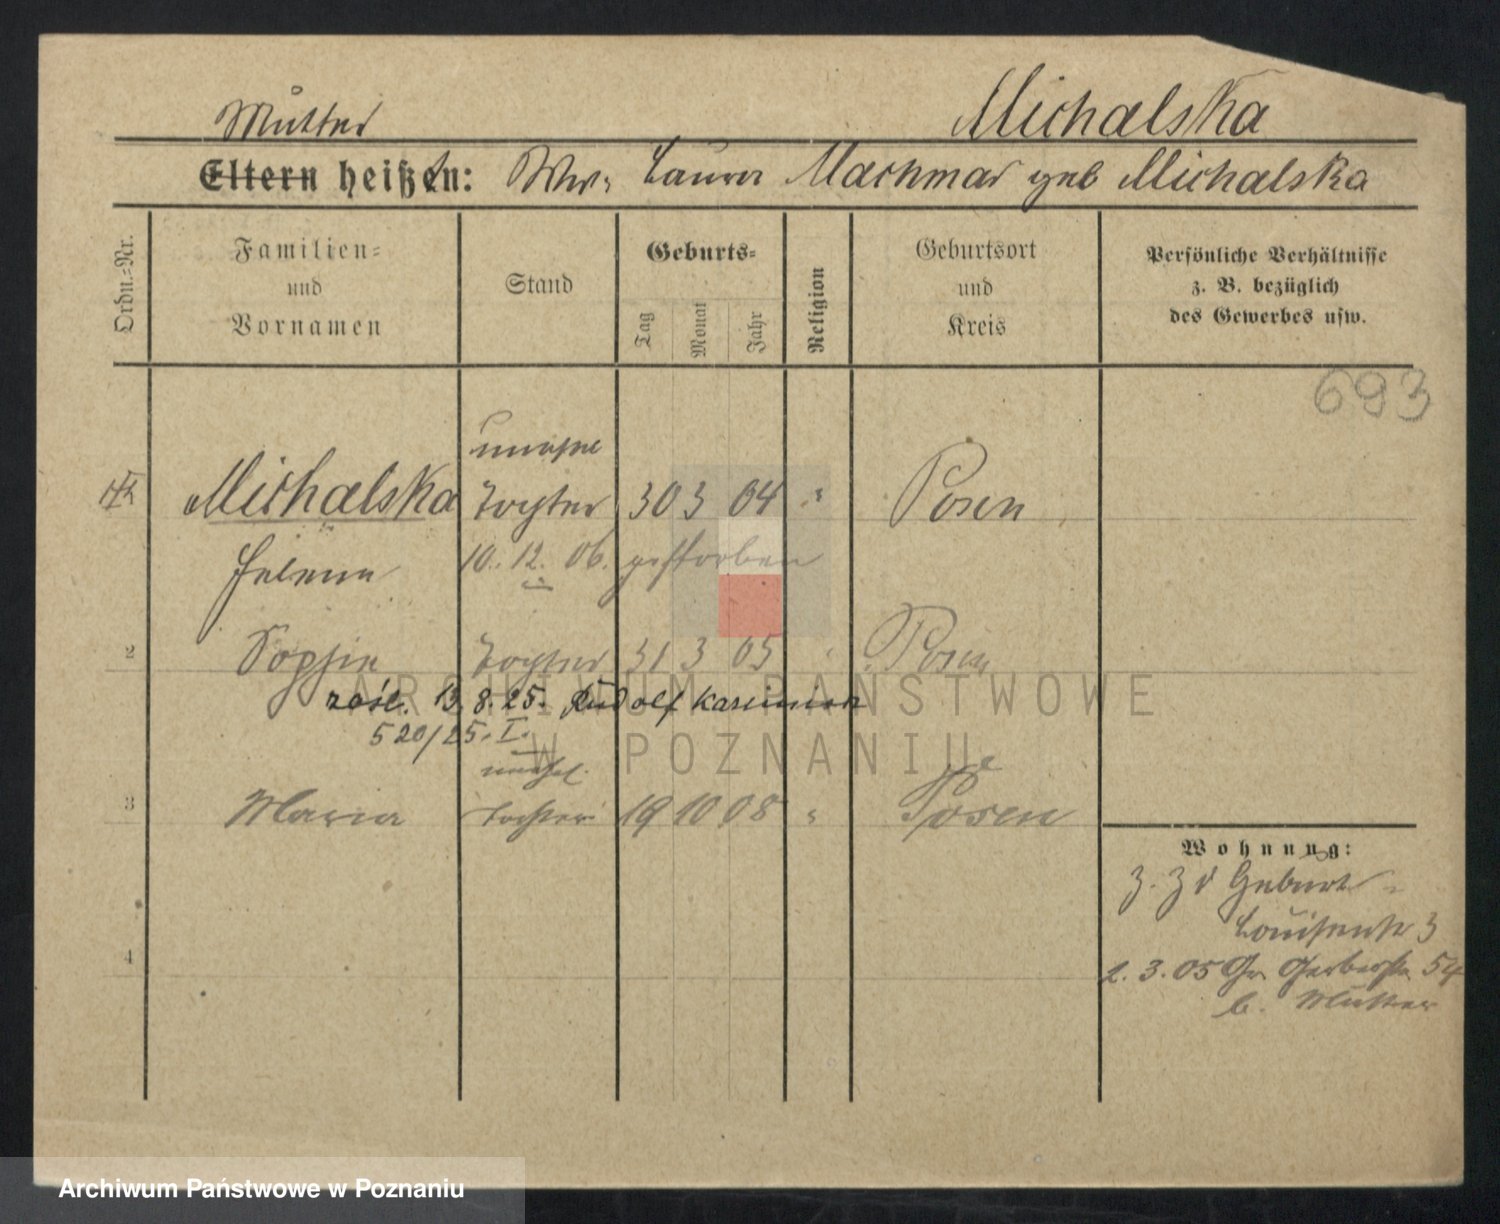 Mutter
Michalska
Eltern heißen: Ww. Laura Machmar geb Michalska
Ordn.-Nr.
Familien-
und
Vornamen
Stand
Geburts-
Tag
Monat
Jahr
Religion
Geburtsort
und
Kreis
Persönliche Verhältnisse
z. B. bezüglich
des Gewerbes usw.
693
unehel
Michalska Tochter 30 3 04 " Posen
Helena 10. 12. 06. gestorben
2 Sophie Tochter 31 3 05 " Posen
zaśl. 13. 8. 25. Rudolf
520/25. I.
unehel.
3 Maria Tochter 19 10 08 " Posen
Wohnung:
z. Zt Geburt
Louisenstr 3
2. 3. 05 Gr Gerberstr 54
b. Mutter
4
ARCHIWUM PAŃSTWOWE
W POZNANIU
Archiwum Państwowe w Poznaniu